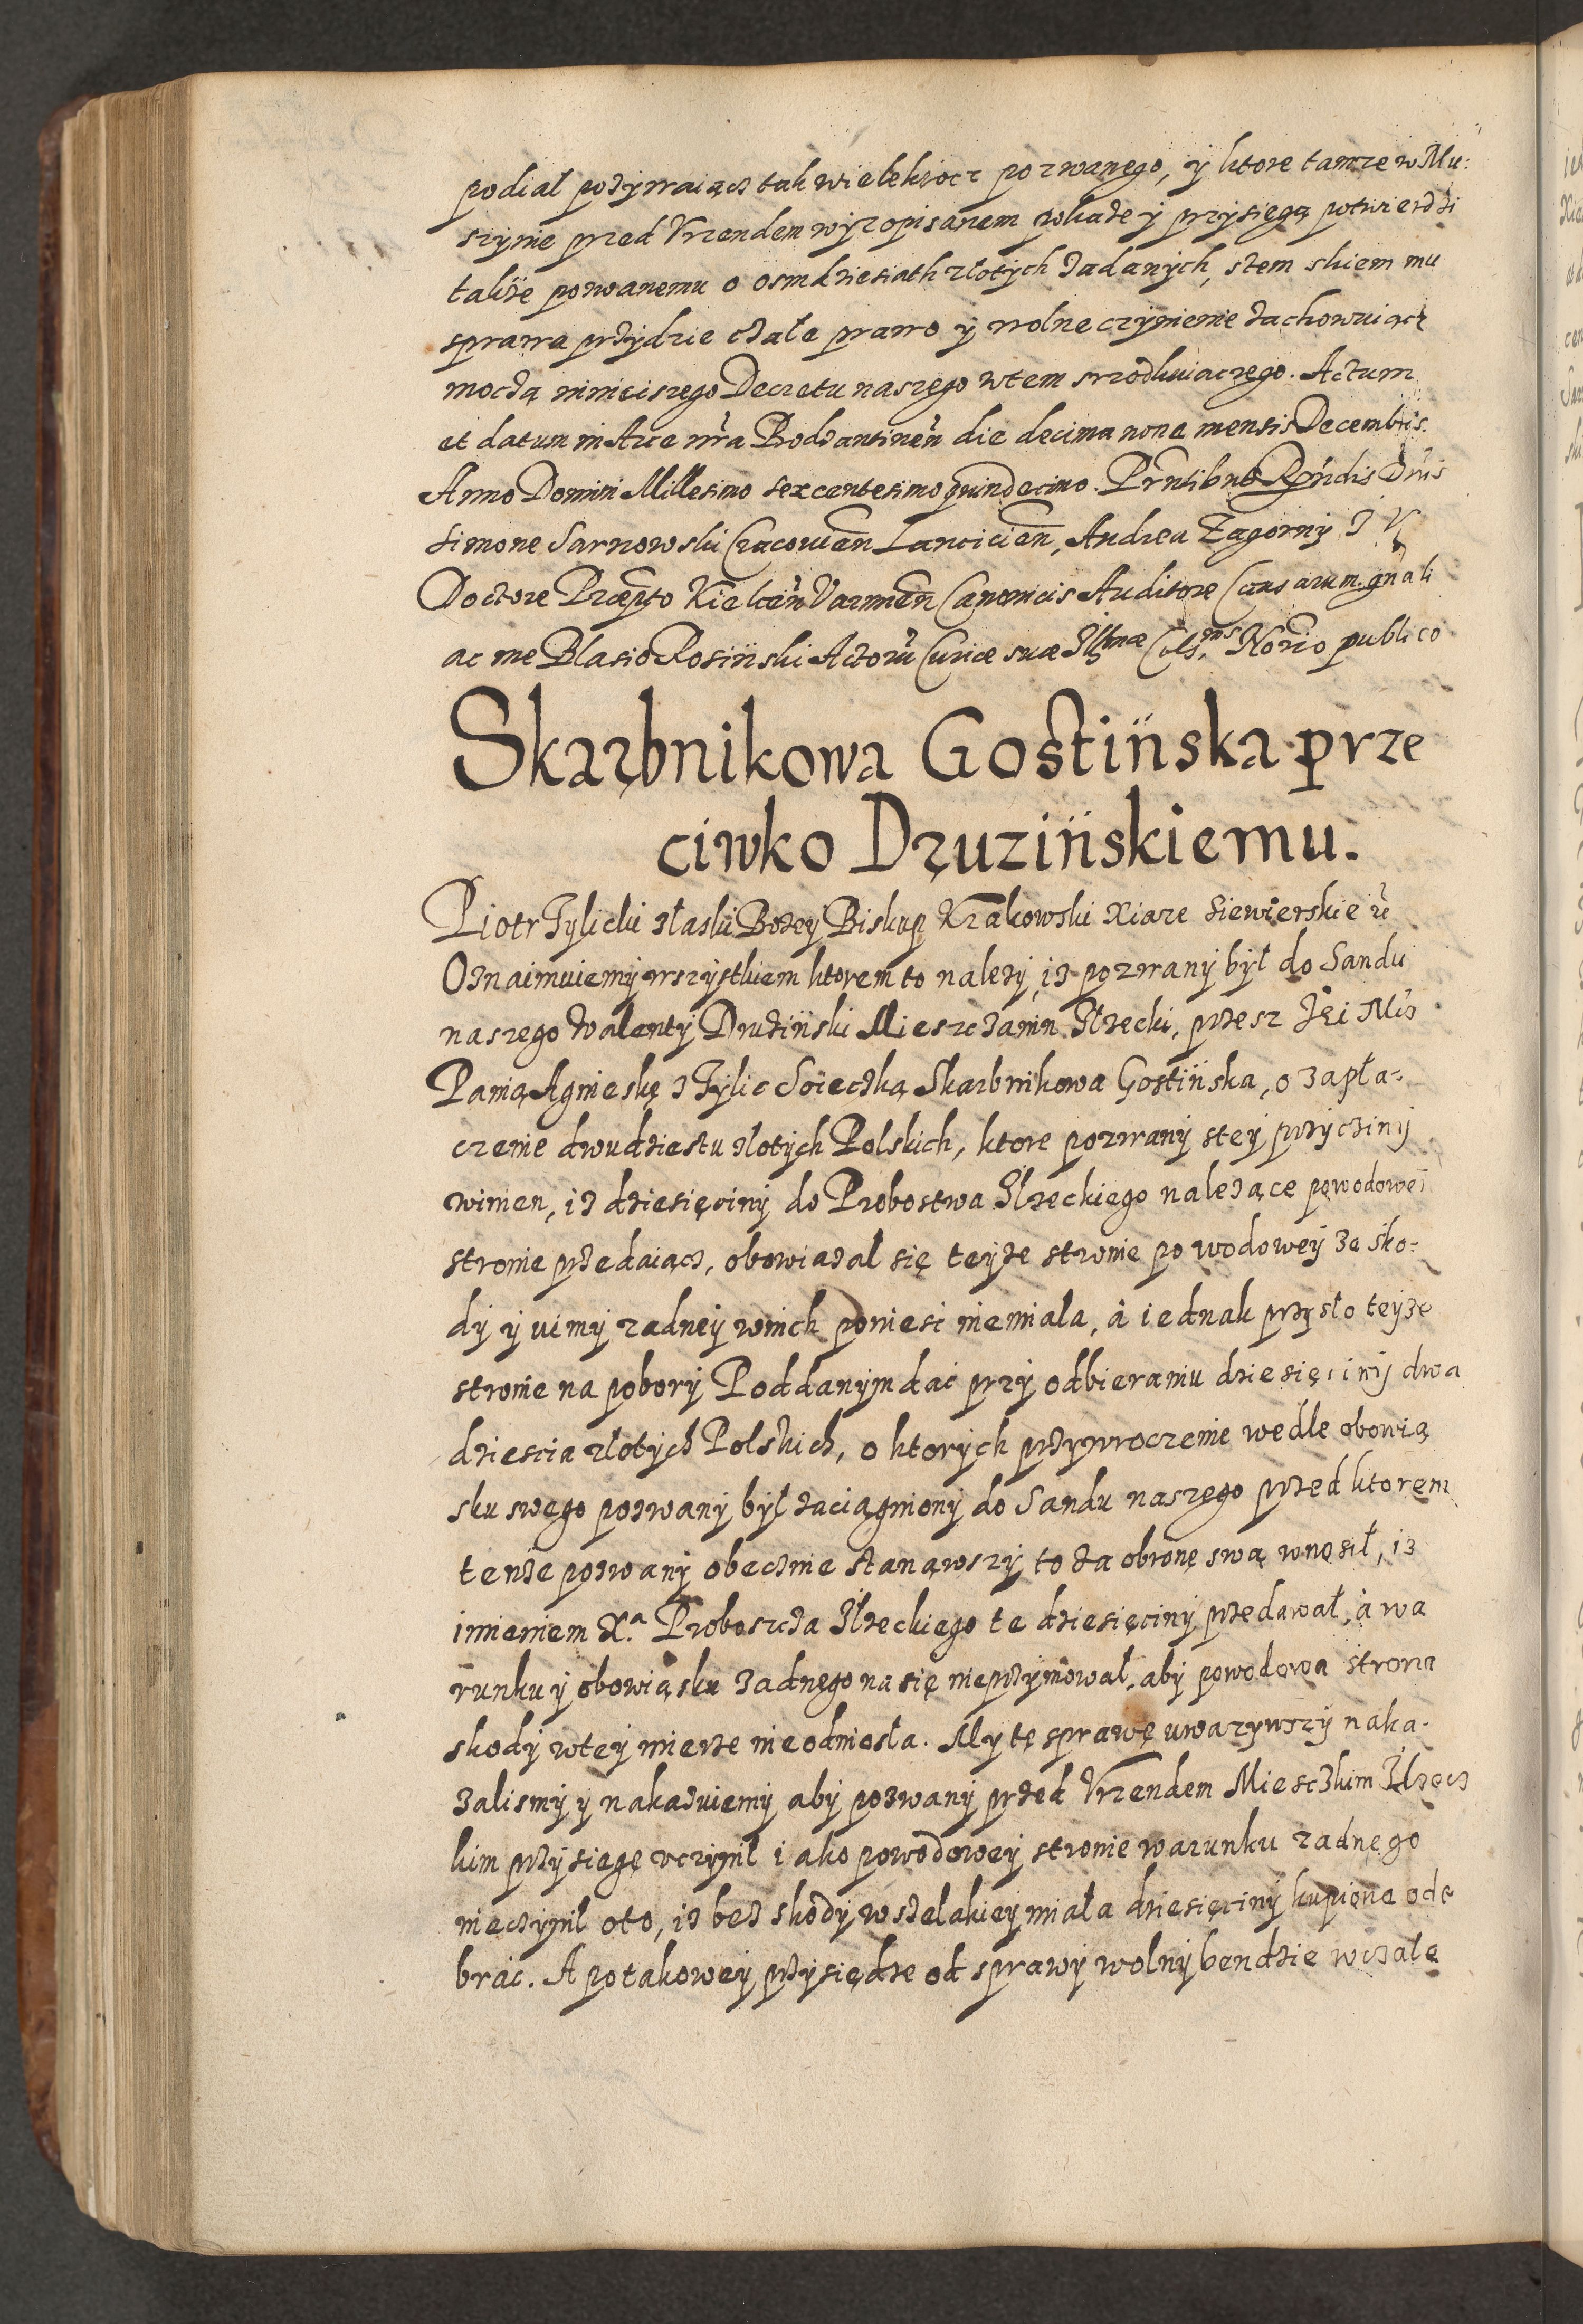 podiał pozÿwaiącz tak wielekrocz pozwanego, ÿ ktore tamze w Mu:
szynie przed Vrzendem wÿzopisanem pokaze ÿ przysięgą potwierdzi
także pozwanemu o osmdziesiath złotÿch zadanÿch, stem skiem mu
sprawa przÿdzie czałe prawo ÿ wolne czÿnienie zachowuiącz
moczą ninieiszego Decretu naszego wtem srzodkuiaczego. Actum
et datum in Arce nr̃a Bodzantineñ die decima nona mensis Decembris.
Anno Domini Millesimo sexcentesimo quindecimo. Pr̃ntibus Rñdis Dñis
Simone Sarnowski Cracovień Lanciciẽn, Andrea Zagornÿ I V
Doctore Præp̃to Kielceñ Varmiẽn Canonicis Auditore Causarum gñali
ac me Blasio Rosiński Actorũ Curiæ suæ Illmæ Cels.nis Nõrio publico
Skarbnikowa Gostińska prze
ciwko Druzińskiemu.
Piotr Tÿlicki złaski Bozeÿ Biskup Krakowski Xiaze Siewierskie ꝛc̃
Oznaimuiemÿ wszÿstkiem ktorem to nalezÿ, iz pozwanÿ bÿł do Sandu
naszego Walentÿ Druziński Mieszczanin Ilzecki, przesz Jei Mcz
Panią Agnieskę z Tÿlic Soieczką Skarbnikowa Gostińska, o zapła-
czenie dwudziestu złotÿch Polskich, ktore pozwanÿ steÿ przÿczinÿ
winien, iz dziesięcinÿ do Probostwa Ilzeckiego nalezące powodoweÿ
stronie przedaiącz, obowiazal się teÿze stronie powodoweÿ ze sko-
dÿ ÿ uimÿ zadneÿ wnich poniesc niemiala, à iednak przÿsło teÿze
stronie na poborÿ Poddanÿm dac przÿ odbieraniu dziesięcinÿ dwa
dziescia złotÿch Polskich, o ktorÿch przÿwroczenie wedle obowią
sku swego pozwanÿ bÿł zaciągnionÿ do Sandu naszego przed ktorem
tenze pozwanÿ obecznie stanąwszÿ to za obronę swą wnosił, iz
imieniem X.a Proboszcza Ilzeckiego te dziesięcinÿ przedawał, à wa
runku ÿ obowiąsku zadnego na się nieprzÿmował, abÿ powodowa strona
skodÿ wteÿ mierze nieodniosła. Mÿ tę sprawę uwazÿwszÿ naka-
zalismÿ ÿ nakazuiemÿ abÿ pozwanÿ przed Vrzendem Miesczkim Ilzecz
kim przÿsięgę uczÿnił iako powodoweÿ stronie warunku zadnego
nieczÿnił oto, iz bez skodÿ wszelakieÿ miała dziesięcinÿ kupione ode
brać. A po takoweÿ przÿsiędze od sprawÿ wolnÿ bendzie wczale